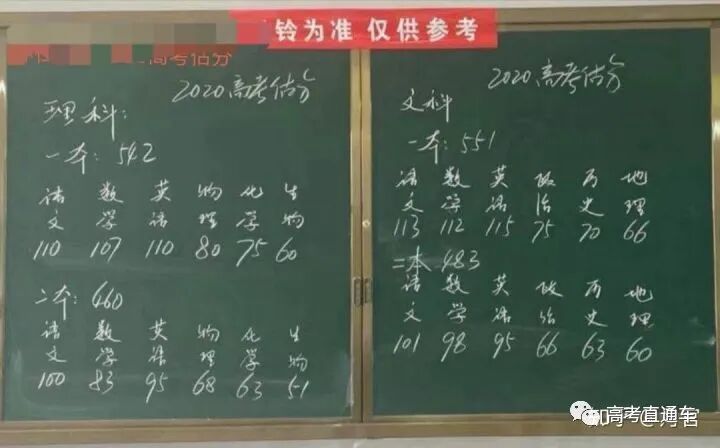 铃为准 仅供参考
高考估分
2020高考估分
理科:
一本: 542
语文 数学 英语 物理 化学 生物
110 107 110 80 75 60
二本: 460
语文 数学 英语 物理 化学 生物
100 83 95 68 63 51
2020高考估分
文科
一本: 551
语文 数学 英语 政治 历史 地理
113 112 115 75 70 66
二本 483
语文 数学 英语 政治 历史 地理
101 98 95 66 63 60
高考直通车